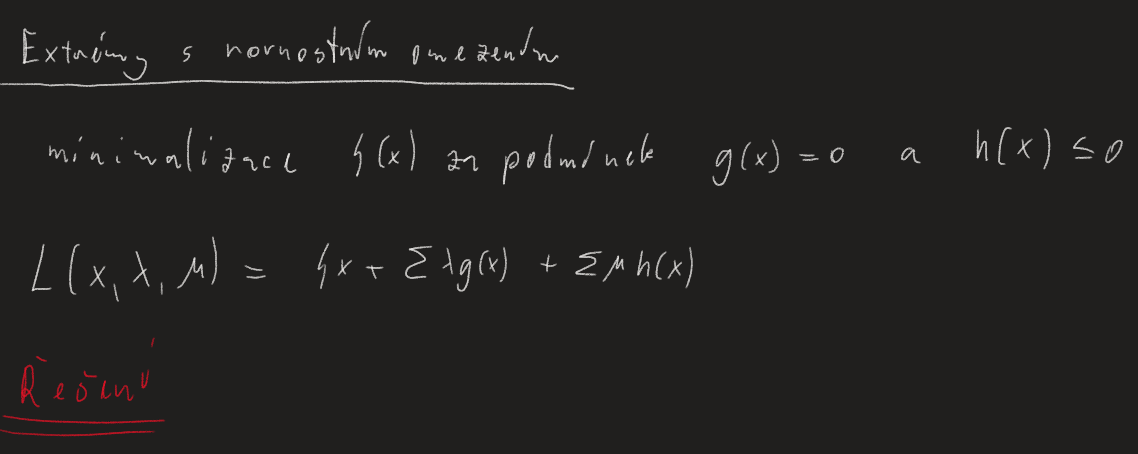 Extrémy s rovnostním omezením
minimalizace f(x) za podmínek g(x) = 0 a h(x) ≤ 0
L(x, λ, μ) = fx + Σ λg(x) + Σ μ h(x)
Řešení